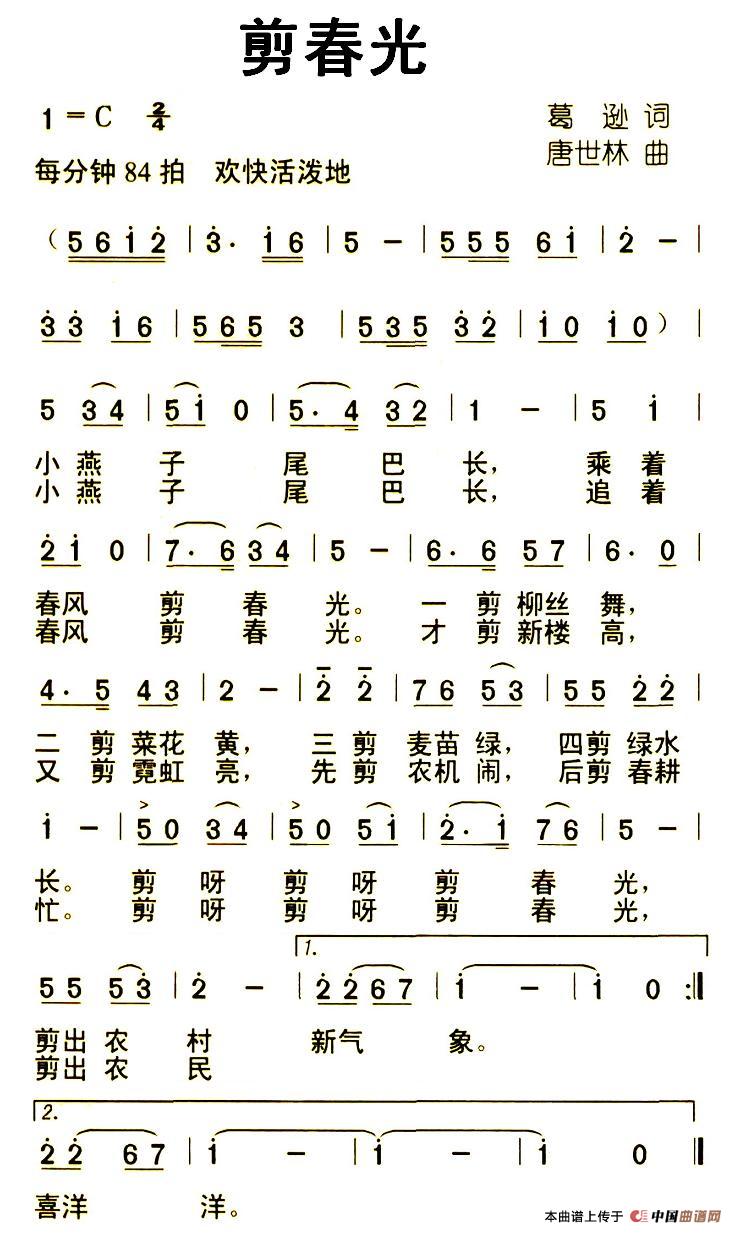 剪春光
1＝C 2/4
葛 逊 词
每分钟 84 拍 欢快活泼地
唐世林 曲
（5 6 i 2̇ | 3̇． i 6 | 5 － | 5 5 5 6 i | 2̇ － |
3̇ 3̇ i 6 | 5 6 5 3 | 5 3 5 3̇ 2̇ | i 0 i 0）|
5 3 4 | 5 i 0 | 5． 4 3 2 | 1 － | 5 i |
小 燕 子 尾 巴 长， 乘 着
小 燕 子 尾 巴 长， 追 着
2̇ i 0 | 7． 6 3 4 | 5 － | 6． 6 5 7 | 6． 0 |
春风 剪 春 光。 一 剪 柳丝 舞，
春风 剪 春 光。 才 剪 新楼 高，
4． 5 4 3 | 2 － | 2̇ 2̇ | 7 6 5 3̇ | 5 5 2̇ 2̇ |
二 剪 菜花 黄， 三 剪 麦苗 绿， 四剪 绿水
又 剪 霓虹 亮， 先 剪 农机 闹， 后剪 春耕
i － | 5 0 3 4 | 5 0 5 i | 2̇． i 7 6 | 5 － |
长。 剪 呀 剪 呀 剪 春 光，
忙。 剪 呀 剪 呀 剪 春 光，
1.
5 5 5 3̇ | 2̇ － | 2̇ 2̇ 6 7 | i － | i 0 :‖
剪出 农 村 新气 象。
剪出 农 民
2.
2̇ 2̇ 6 7 | i － | i － | i 0 ‖
喜洋 洋。
本曲谱上传于 中国曲谱网